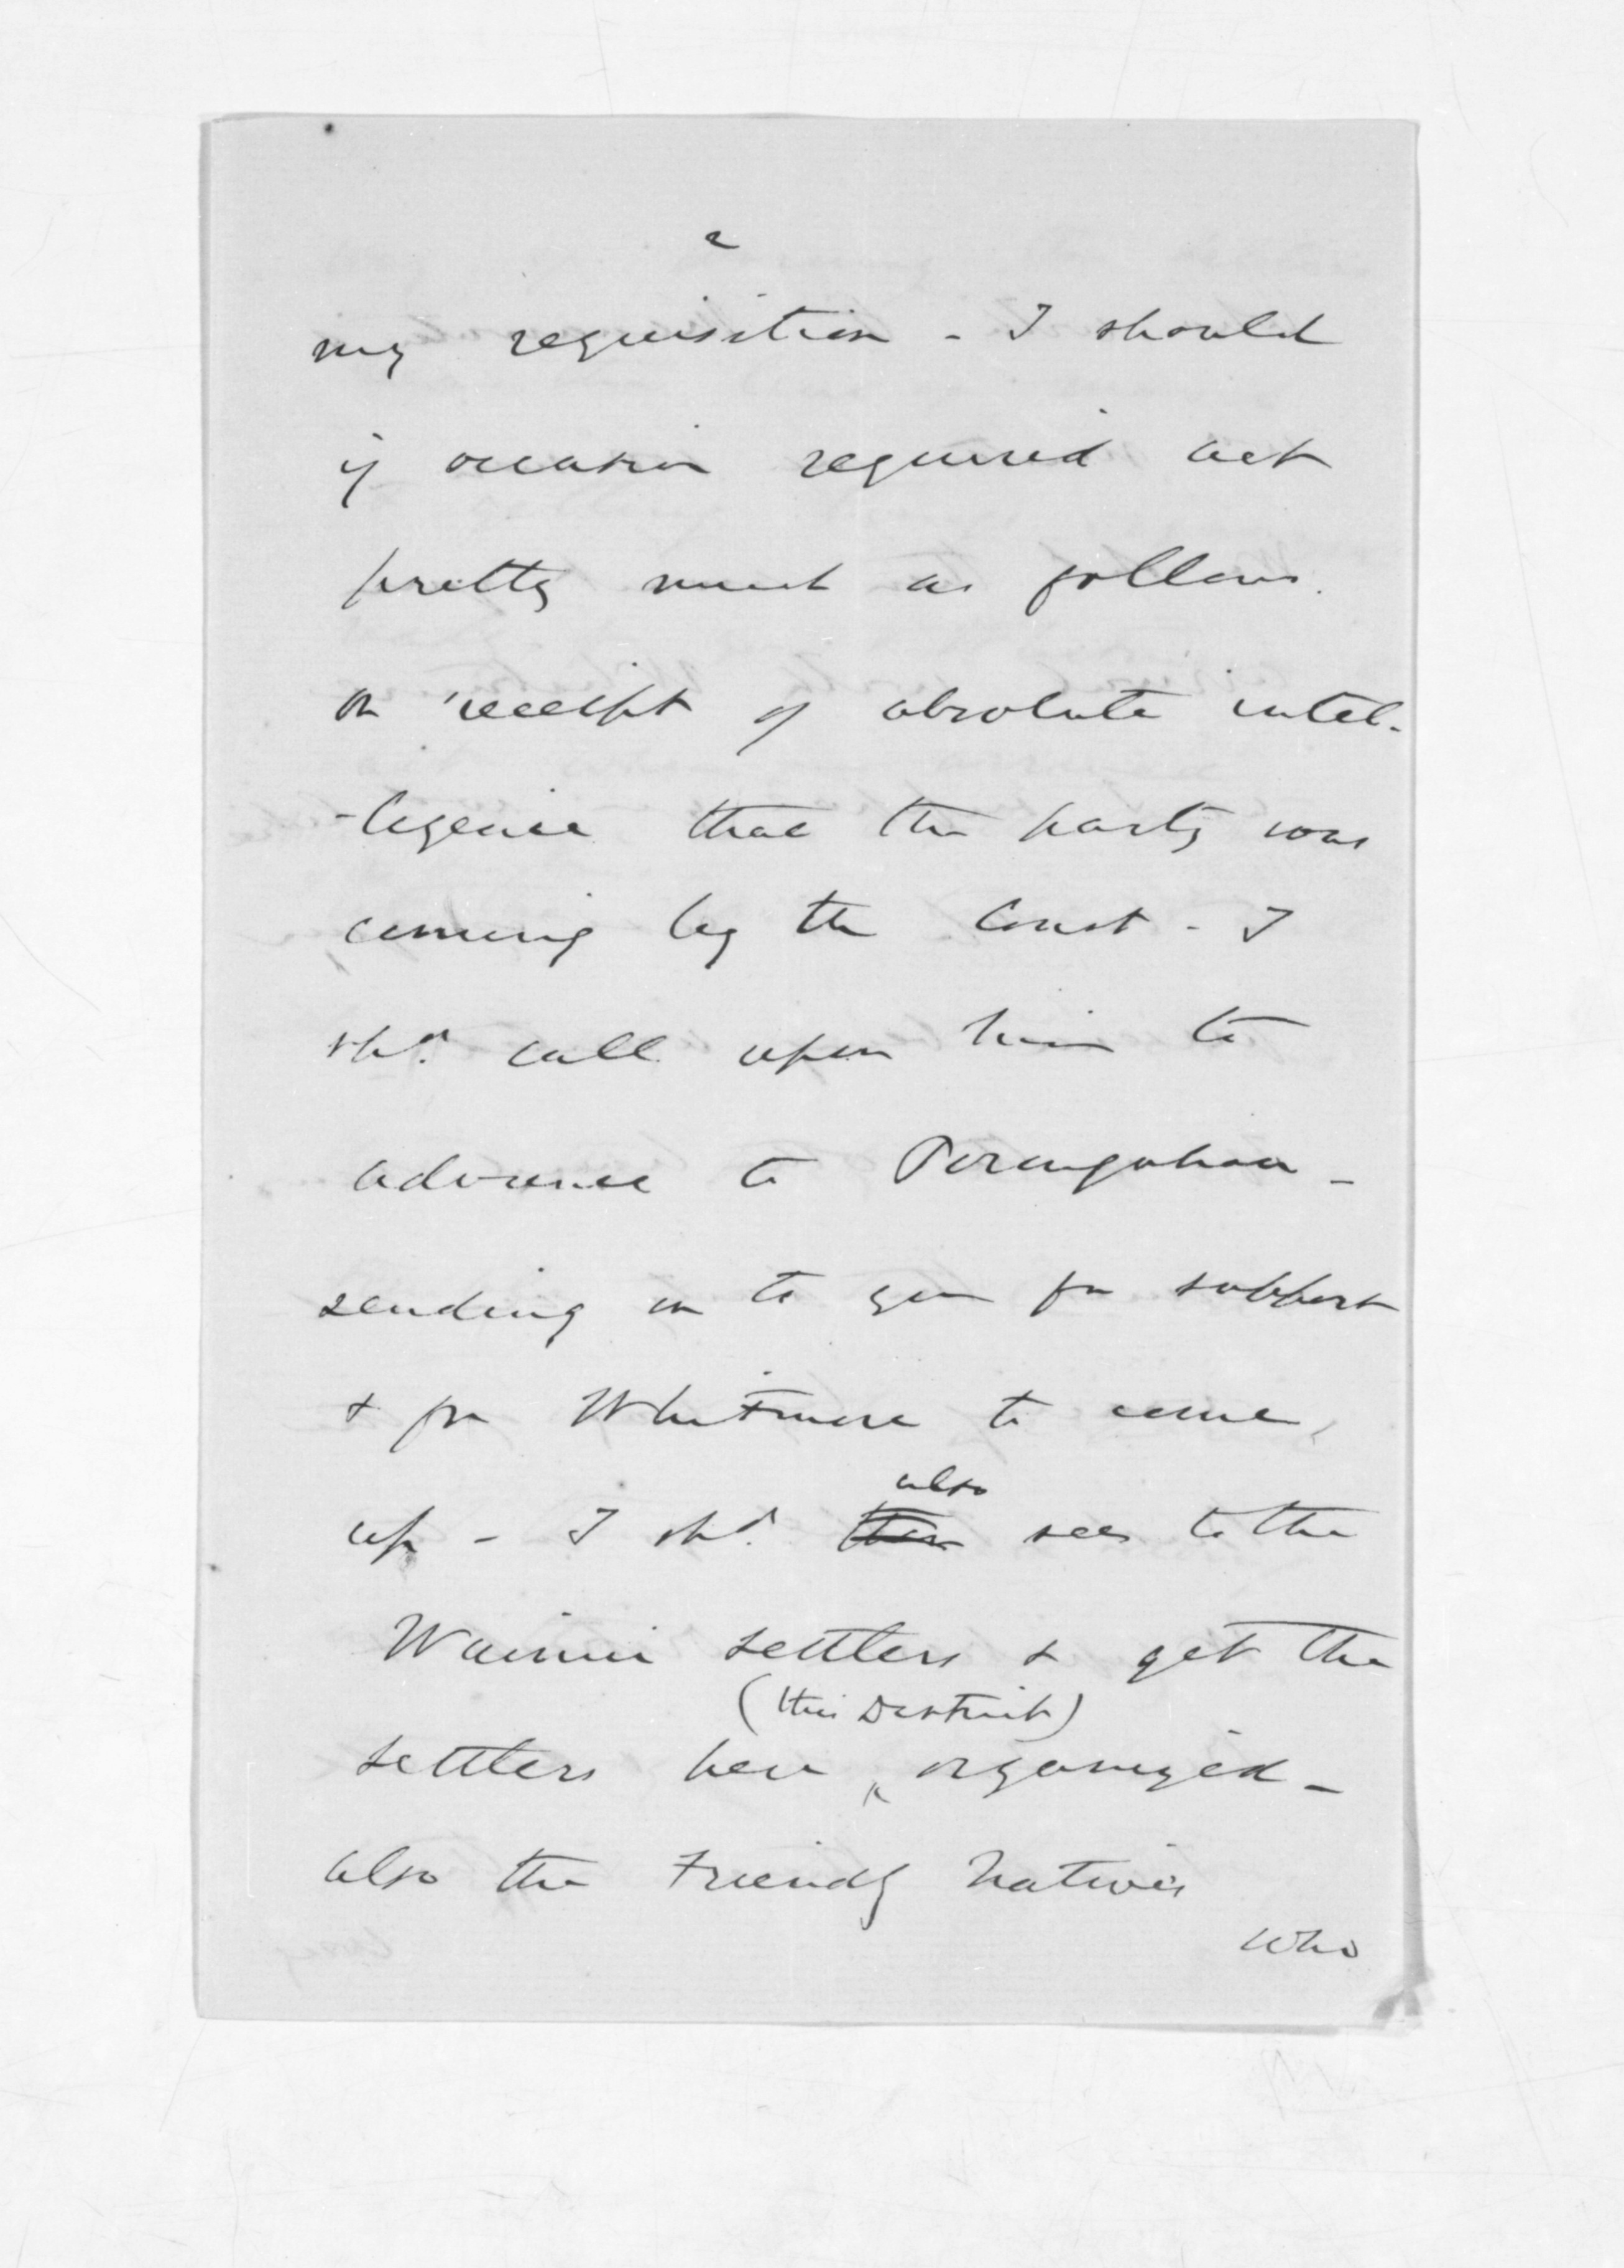 2
my requisition - I should
if occasion required act
pretty much as follows.
On receipt of absolute intel-
-ligence that the party was
coming by the Coast - I
shd. call upon him to
advance to Porangahau -
sending on to you for support
& for Whitmore to come
up - I shd. then also see to the
Wainui settlers & get the
(this District)
settlers here ‸ organized -
also the Friendly Natives
who